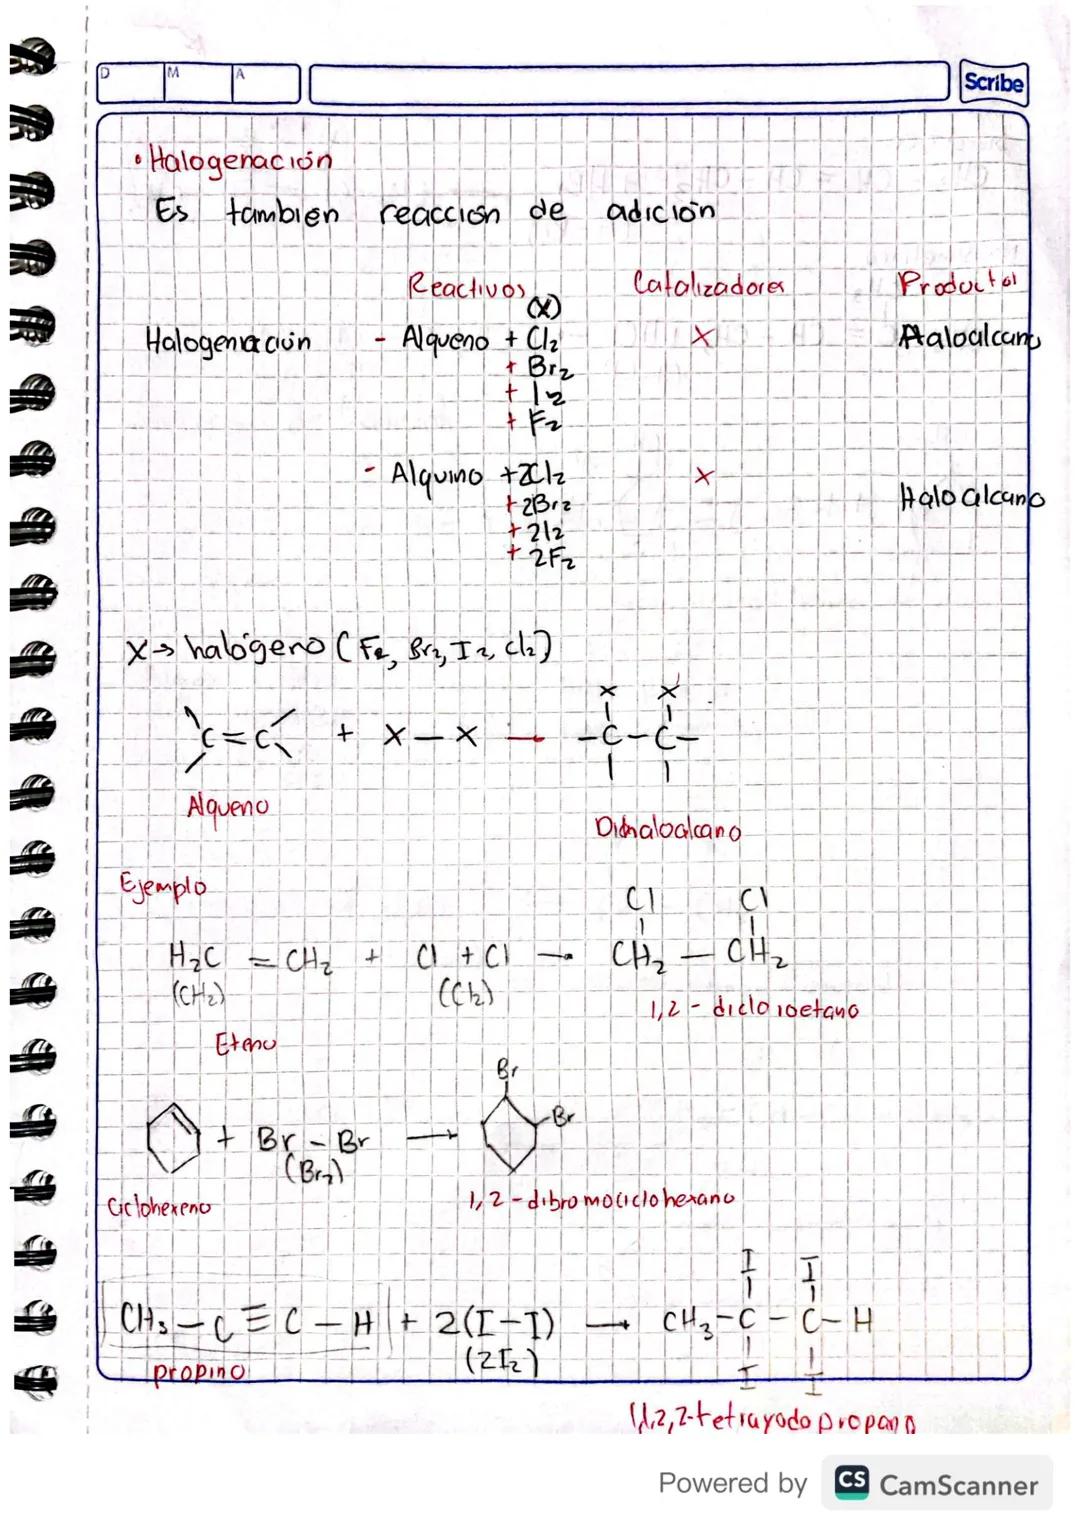 D M A Scribe
• Halogenación
Es tambien reacción de adición
Reactivos Catalizadores Productos
(X)
Halogenación - Alqueno + Cl₂ X Haloalcano
+ Br₂
+ I₂
+ F₂
- Alquino + 2Cl₂ X Haloalcano
+ 2Br₂
+ 2I₂
+ 2F₂
X → halógeno (F₂, Br₂, I₂, Cl₂)
X X
C=C + X — X → -C-C-
Alqueno
Dihaloalcano
Ejemplo
Cl Cl
H₂C = CH₂ + Cl + Cl → CH₂ — CH₂
(CH₂) (Cl₂)
1,2 - dicloroetano
Eteno
Br
+ Br - Br → Br
(Br₂)
Ciclohexeno 1,2 - dibromociclohexano
I I
CH₃ — C ≡ C — H + 2(I-I) → CH₃-C - C-H
propino (2I₂) I I
1,1,2,2-tetrayodopropano
Powered by CS CamScanner